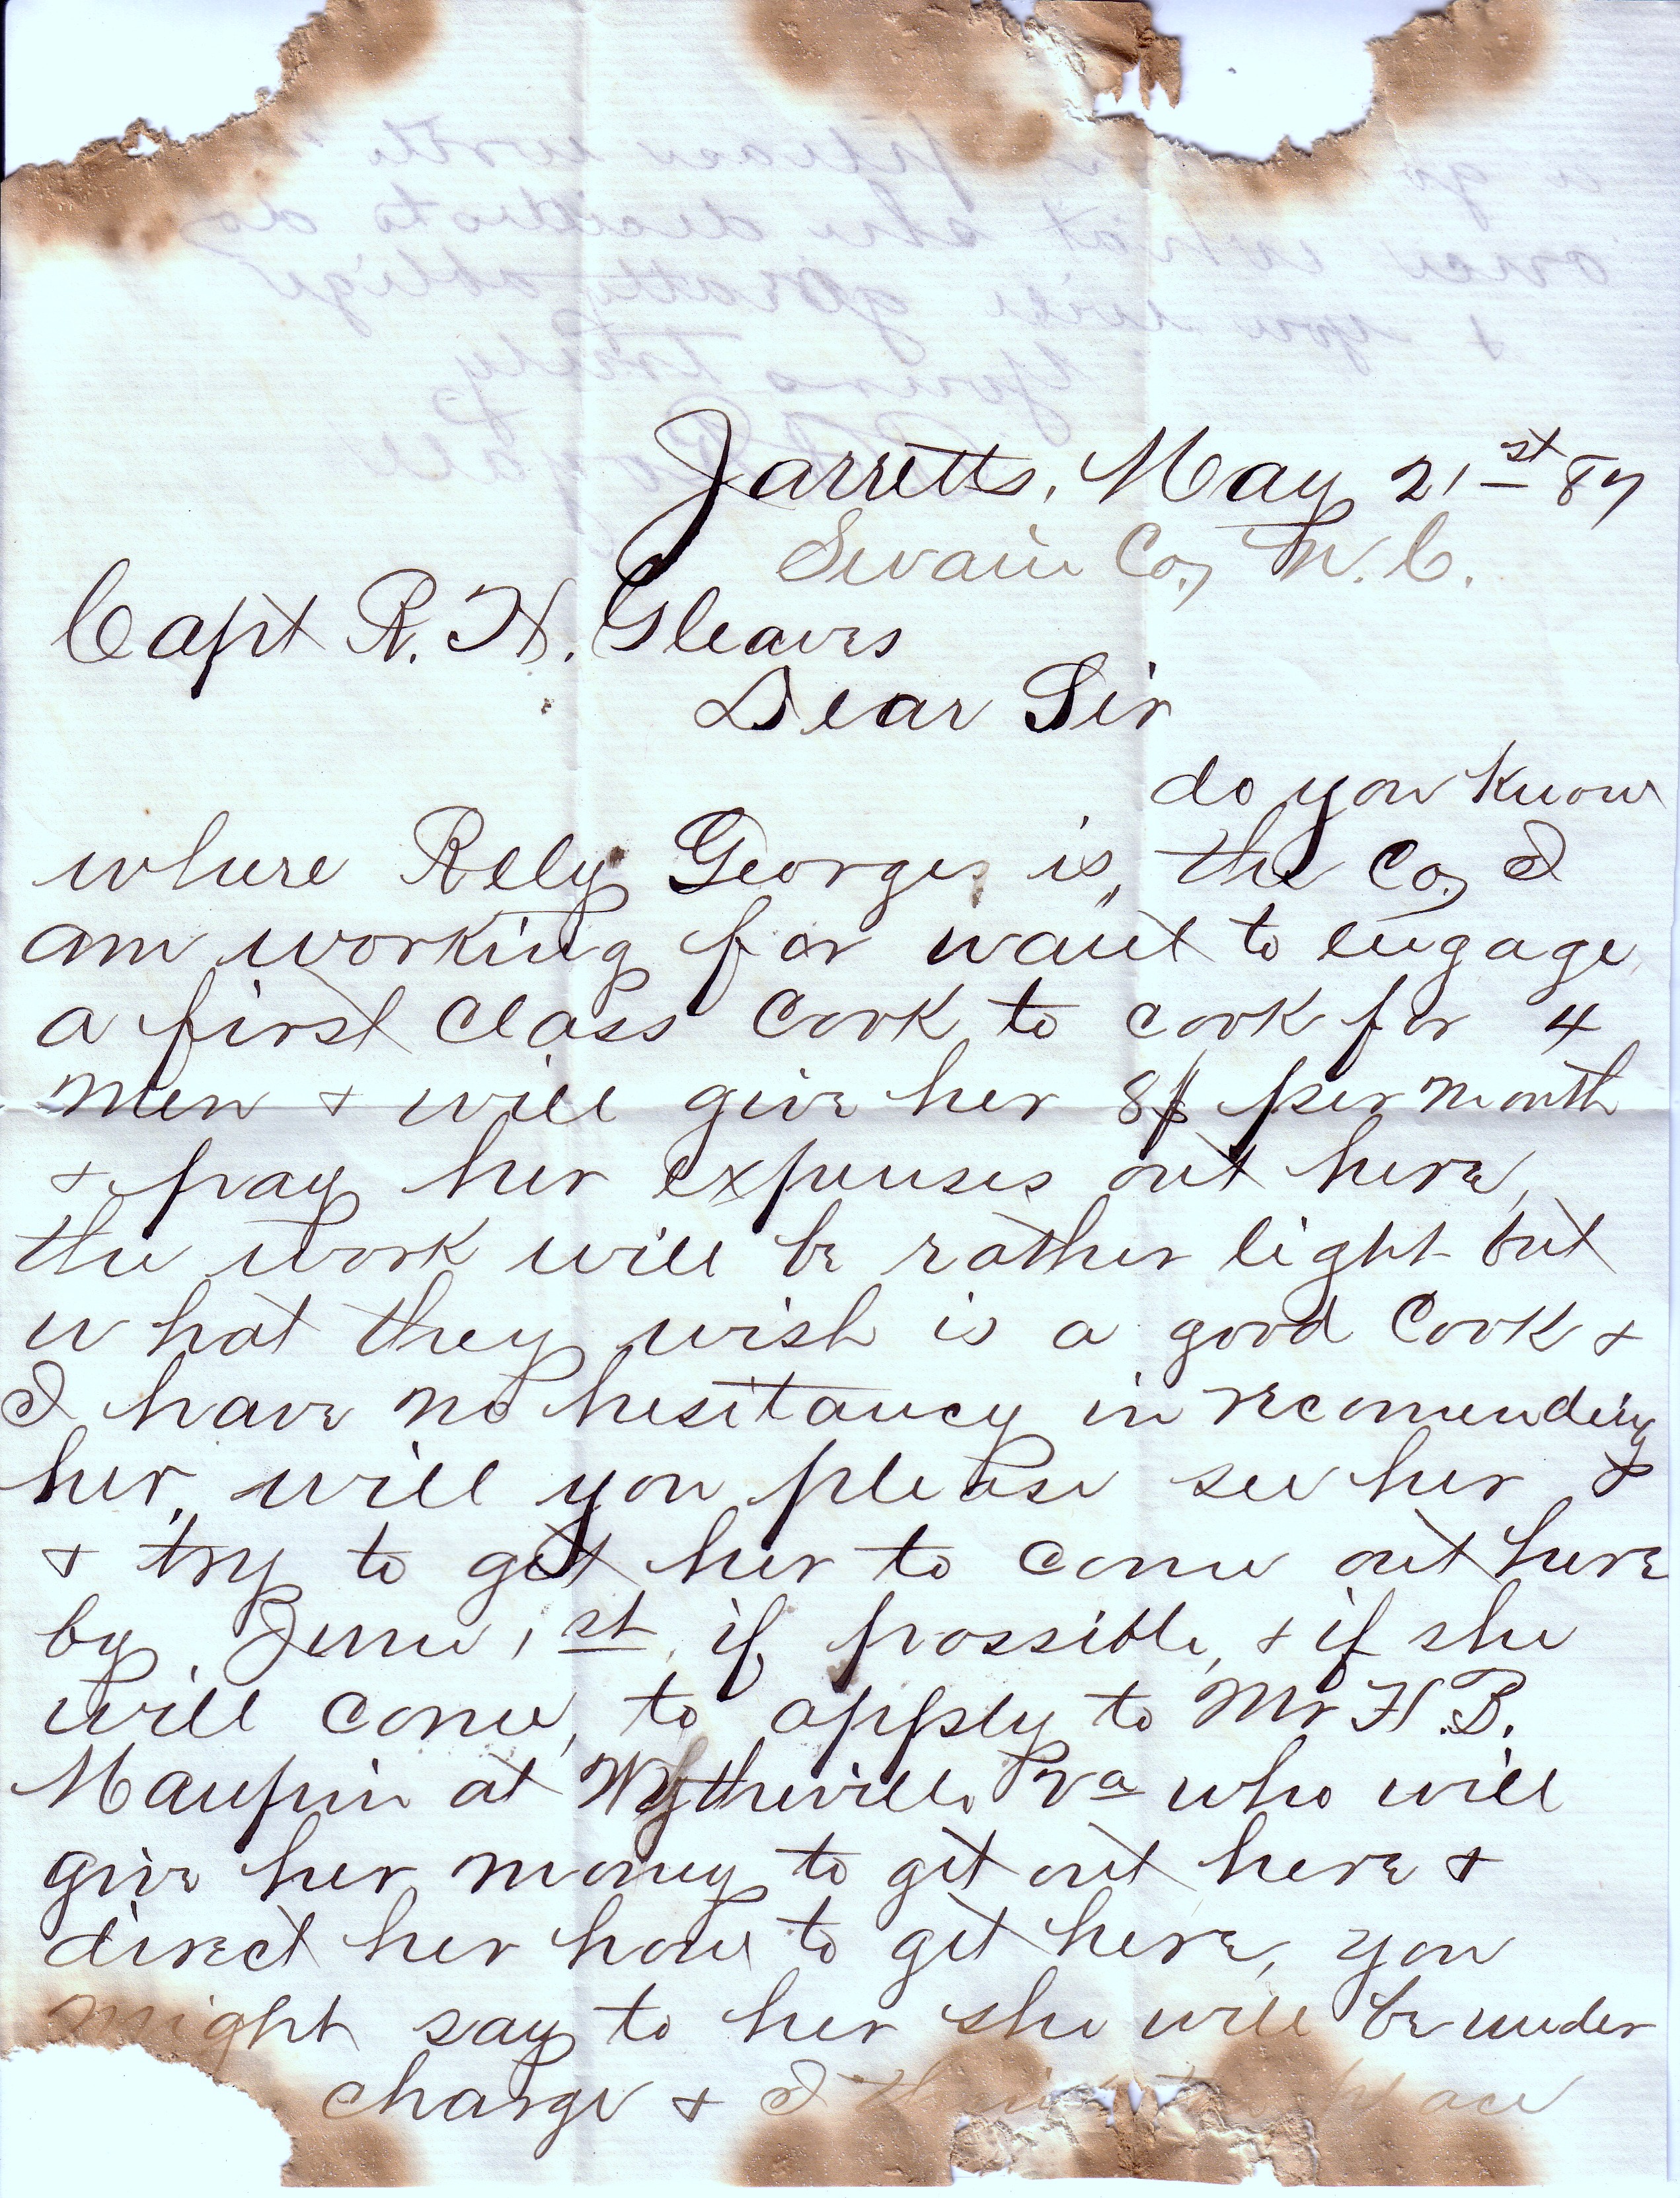 Jarretts, May 21st 87
Swain Co, N.C.
Capt R. H. Gleaves
Dear Sir
do you know
where Rely George is, the Co, I
am working for want to engage
a first Class Cook to cook for 4
men + will give her 8$ per month
+ pay her expenses out here,
the work will be rather light but
what they wish is a good Cook +
I have no hesitancy in recomending
her, will you please see her &
+ try to get her to come out here
by June 1st, if possible, + if she
will come, to apply to Mr H.B.
Maupin at Wytheville Va who will
give her money to get out here +
direct her how to get here, you
might say to her she will be under
charge + I think the place